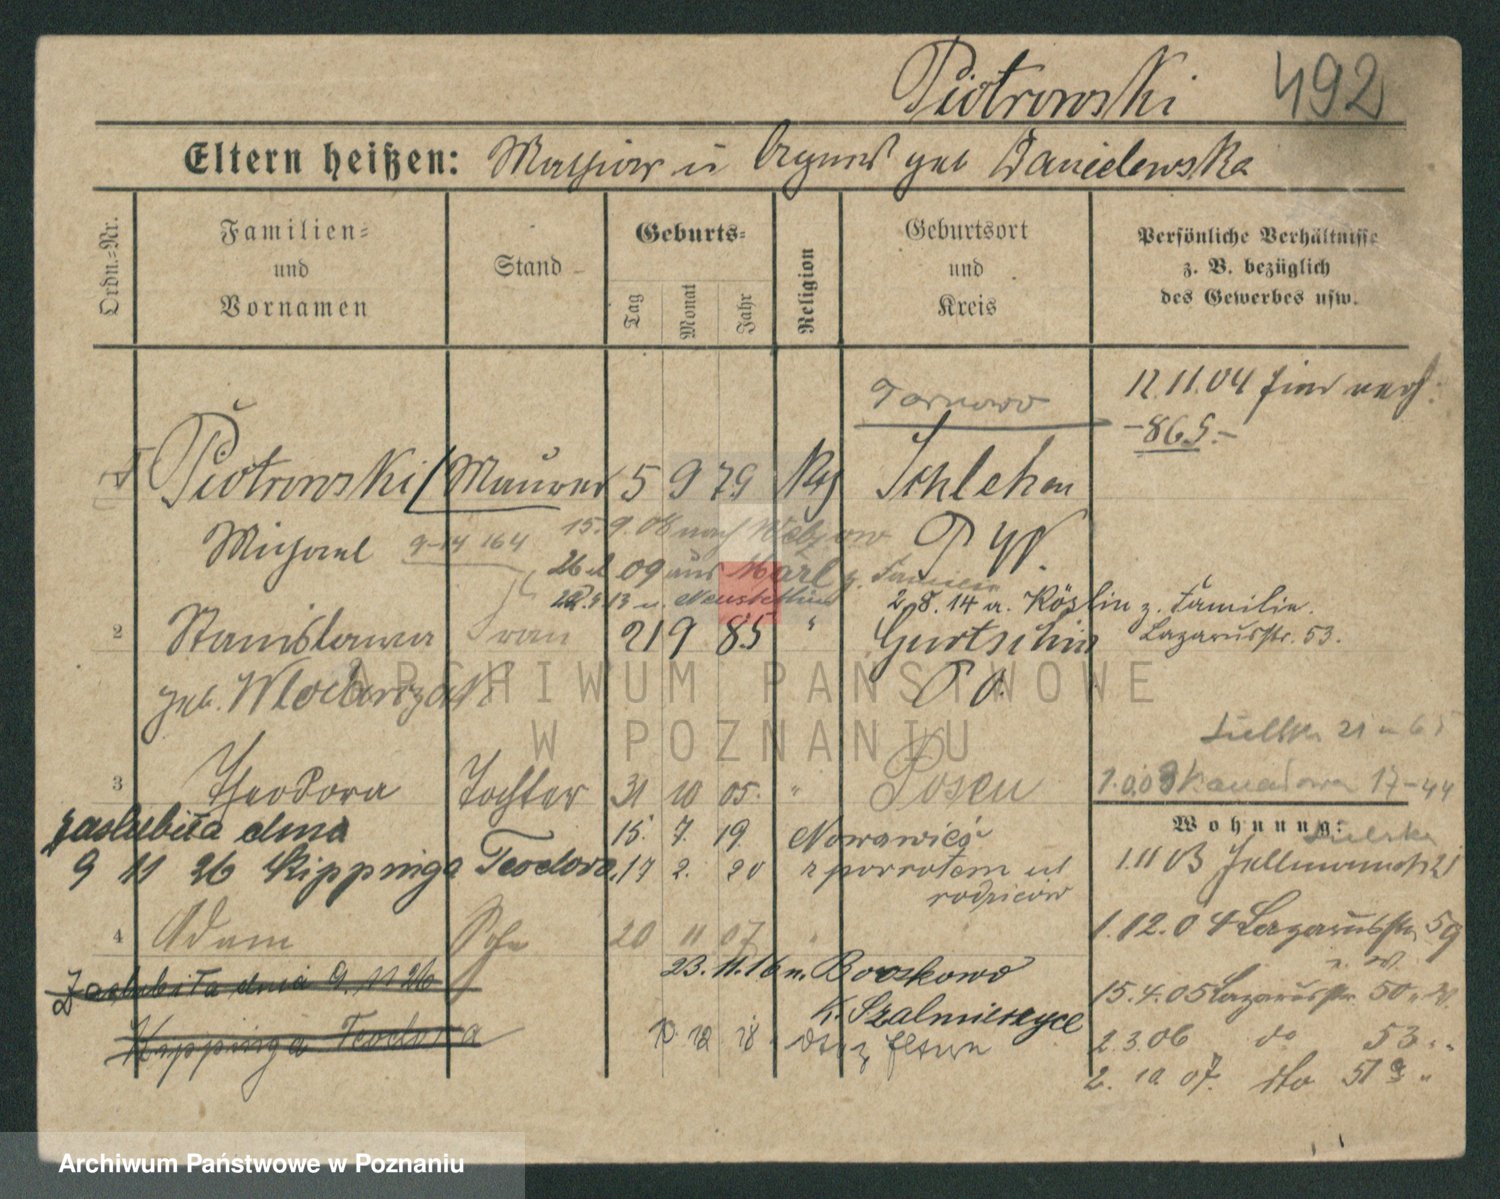 Piotrowski 492
Eltern heißen: Mathias u Agnes geb Danielewska
Ordn.-Nr.
Familien-
und
Vornamen
Stand
Geburts-
Tag
Monat
Jahr
Religion
Geburtsort
und
Kreis
Persönliche Verhältnisse
z. B. bezüglich
des Gewerbes usw.
Tarnowo
12.11.04
-865.-
Piotrowski / Maurer 5 9 79 Schlehen
Michael 9-14 164 P W
15.9.08 nach
26 09 aus Marl z. Familie
13 Neustettin
2.8.14 a. Köslin z. Familie.
Lazarusstr. 53.
2 Stanislawa Frau 21 9 85 " Gurtschin
geb. Wlodarczak P O.
21 65
3 Theodora Tochter 31 10 05. " Posen
17-44
Wohnung:
zaslubiła dnia 15. 7. 19.
9 11 26 Kippinga Teodora 17 2. 20 z powrotem ul
rodziców
1.11 03 21
4 Adam Sohn 20 11 07 "
1.12.04 Lazarusstr. 59
23.11.16 n. Borzkowo
K. Szalmierzyce
Zaslubiła dnia 9. 11 26
Kippinga Teodora
10 12 18 Eltern
15.4.05 Lazarusstr. 50
2.3.06 do 53 "
2. 10 07. dto 51 "
ARCHIWUM PAŃSTWOWE
W POZNANIU
Archiwum Państwowe w Poznaniu